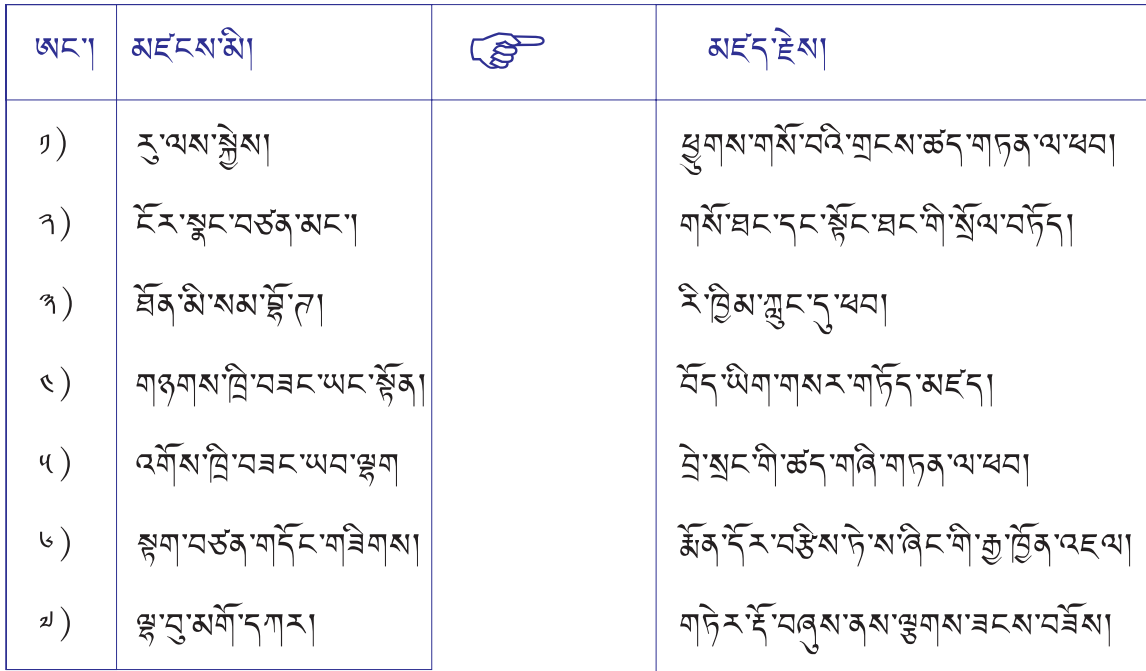 ཨང་། མཛངས་མི། ☞ མཛད་རྗེས།
༡) རུ་ལས་སྐྱེས། ཕྱུགས་གསོ་བའི་གྲངས་ཚད་གཏན་ལ་ཕབ།
༢) ངོར་སྣང་བཙན་མང་། གསོ་ཐང་དང་སྟོང་ཐང་གི་སྲོལ་བཏོད།
༣) ཐོན་མི་སམ་བྷོ་ཊ། རི་ཁྱིམ་ཀླུང་དུ་ཕབ།
༤) གཉགས་ཁྲི་བཟང་ཡང་སྟོན། བོད་ཡིག་གསར་གཏོད་མཛད།
༥) འགོས་ཁྲི་བཟང་ཡབ་ལྷག བྲེ་སྲང་གི་ཚད་གཞི་གཏན་ལ་ཕབ།
༦) སྟག་བཙན་གདོང་གཟིགས། རྨོན་དོར་བརྩིས་ཏེ་ས་ཞིང་གི་རྒྱ་ཁྱོན་འཇལ།
༧) ལྷ་བུ་མགོ་དཀར། གཏེར་རྡོ་བཞུས་ནས་ལྕགས་ཟངས་བཟོས།